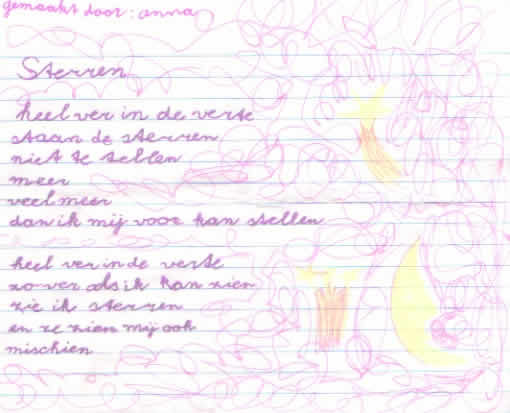 gemaakt door: anna
Sterren
heel ver in de verte
staan de sterren
niet te tellen
meer
veel meer
dan ik mij voor kan stellen
heel ver in de verte
zo ver als ik kan zien
zie ik sterren
en ze zien mij ook
mischien